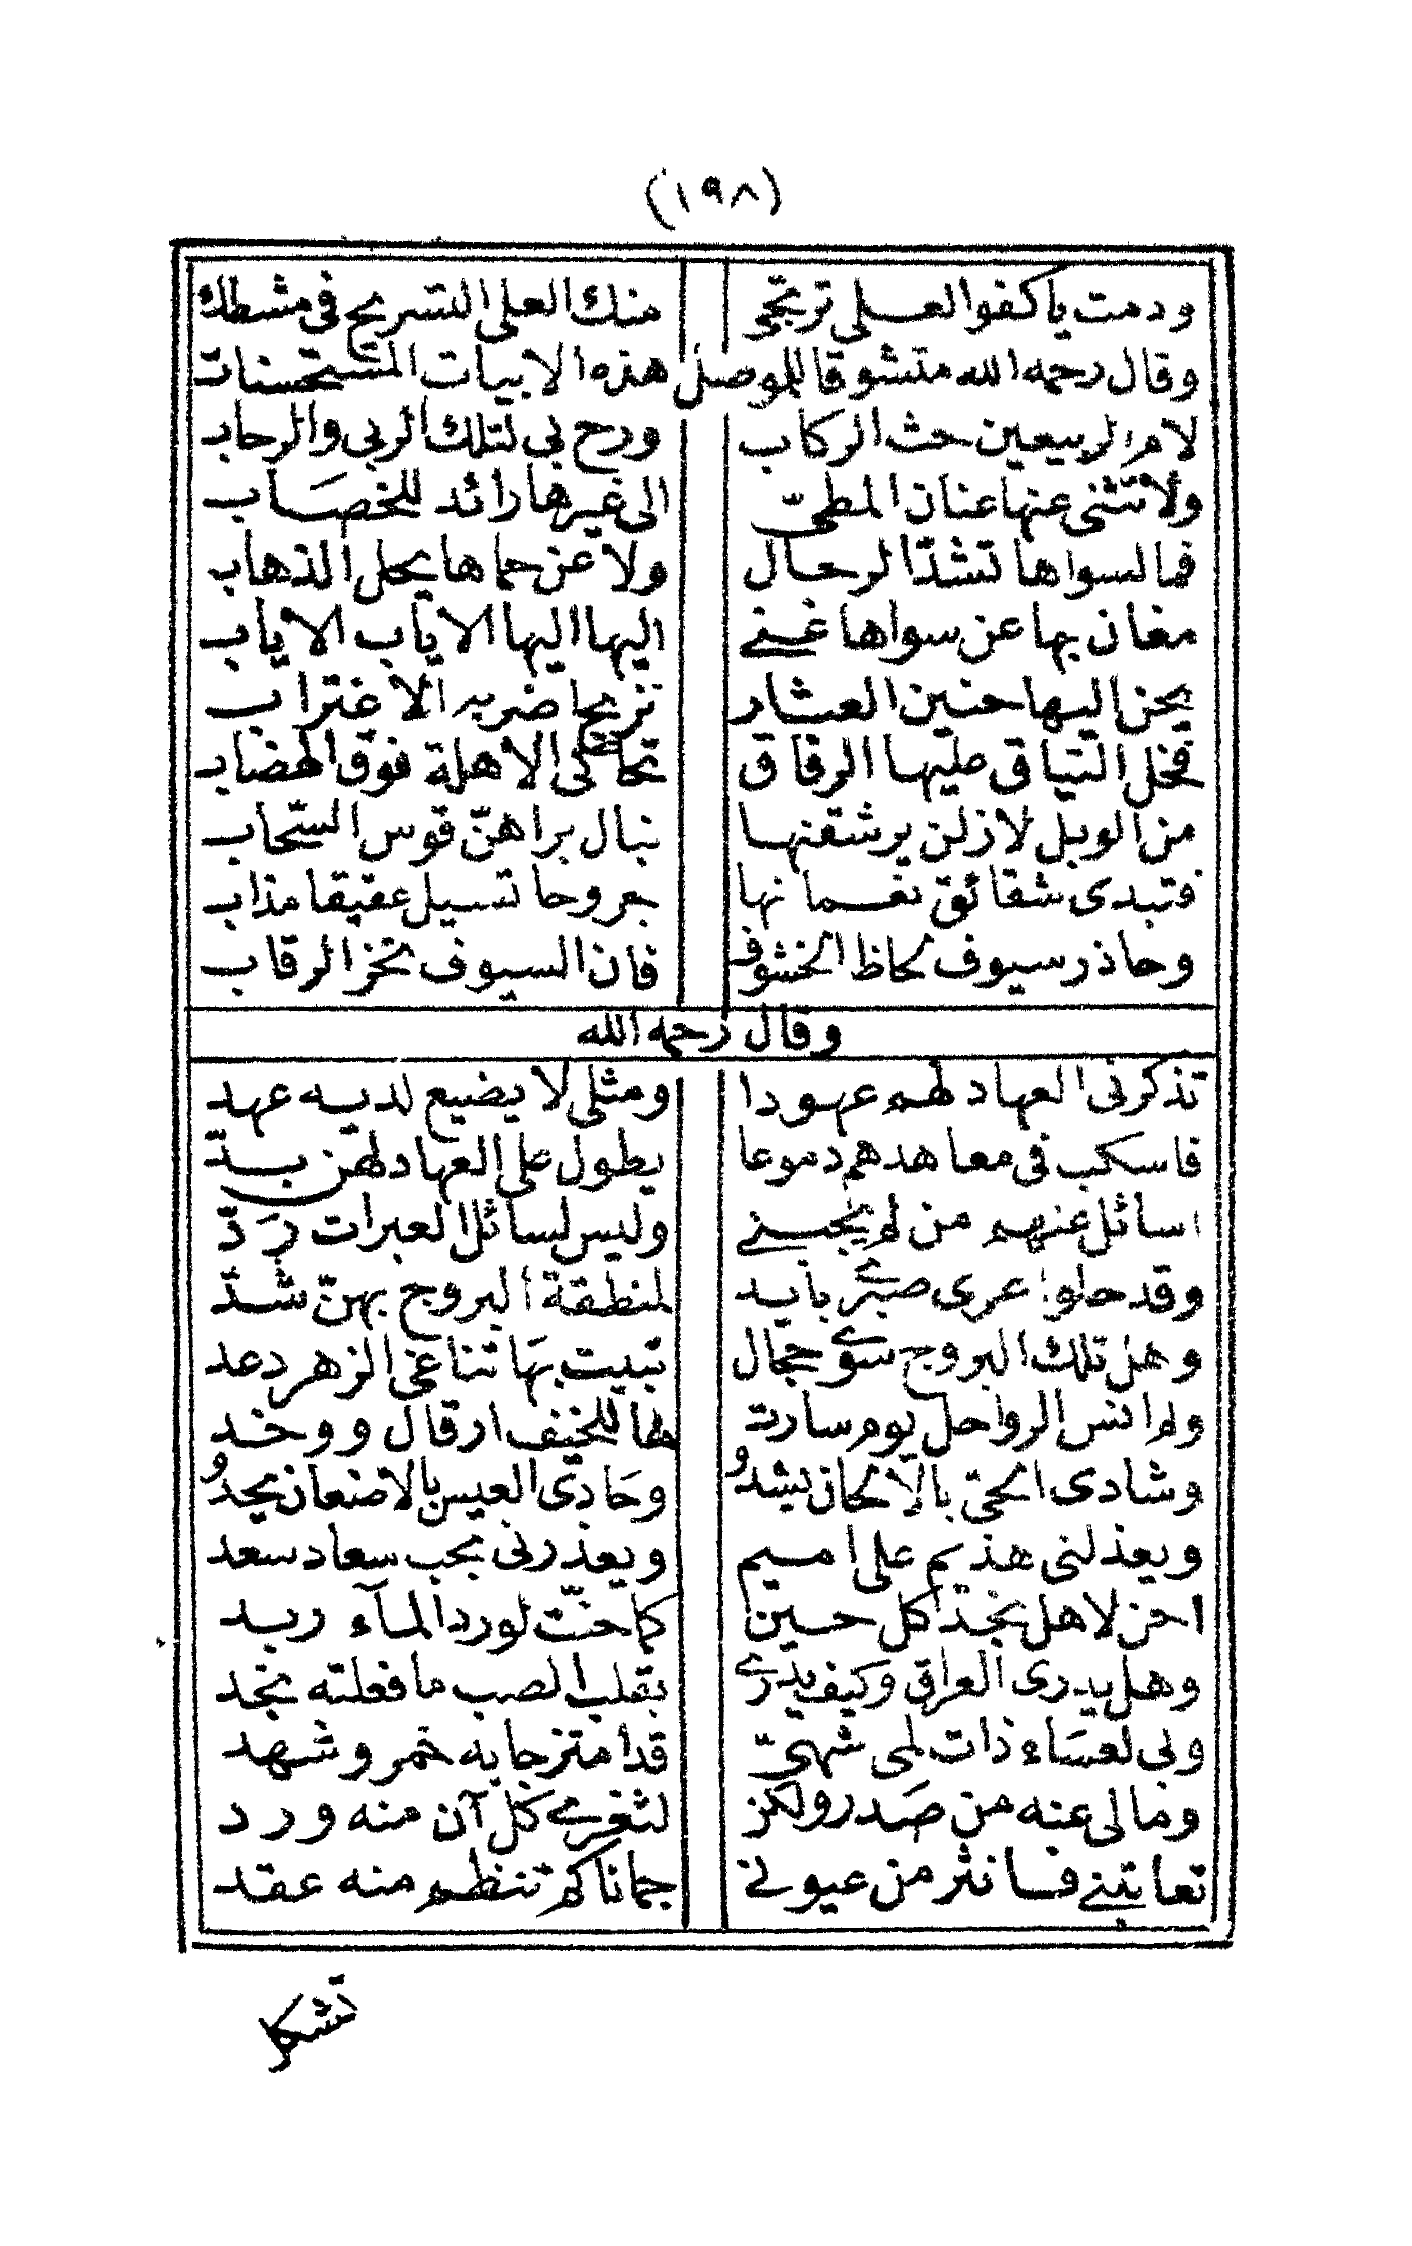 (١٩٨)
ودمت يا كفو العلى ترتجى منك العلى التسريح فى مشطك
وقال رحمه الله متشوقا للموصل هذه الابيات المستحسنات
لام الربيعين حث الركاب ورح بى لتلك الربى والرحاب
ولا تثنى عنها عنان المطىّ الى غيرها رائد للخصاب
فما لسواها تشدّ الرحال ولا عن حماها يحل الذهاب
مغان بها عن سواها غنى اليها اليها الاياب الاياب
يحن اليها حنين العشار نزيح اضربه الاغتراب
فخل النياق عليها الرقاق تحاكى الاهلة فوق الهضاب
من الوبل لا زلن يرشقنها نبال براهنّ قوس السّحاب
فتبدى شقائق نعمانها جروحا تسيل عقيقا مذاب
وحاذر سيوف لحاظ الخشوف فان السيوف تحز الرقاب
وقال رحمه الله
تذكرنى العهاد لهم عهودا ومثلى لا يضيع لديه عهد
فاسكب فى معاهدهم دموعا يطول على العهاد لهن بدّ
اسائل عنهم من لم يجبنى وليس لسائل العبرات ردّ
وقد حلوا عرى صبرى بايد لمنطقة البروج بهنّ شدّ
وهل تلك البروج سوى حجال تبيت بها تناغى الزهر دعد
ولم انس الرواحل يوم سارت لها للخيف ارقال ووخد
وشادى الحىّ بالالحان يشدو وحادى العيس بالاضعان يحدو
ويعذلنى هذيم على اميم ويعذرنى بحب سعاد سعد
احن لاهل نجد كل حين كما حنّت لورد المآء ربد
وهل يدرى العراق وكيف يدرى بقلب الصب ما فعلته نجد
ولى لعساء ذات لمى شهىّ قد امتزجا به خمر وشهد
ومالى عنه من صدر ولكن لثغرى كل آن منه ورد
تعاتبنى فانثر من عيونى جمانا كم تنظم منه عقد
تشكا